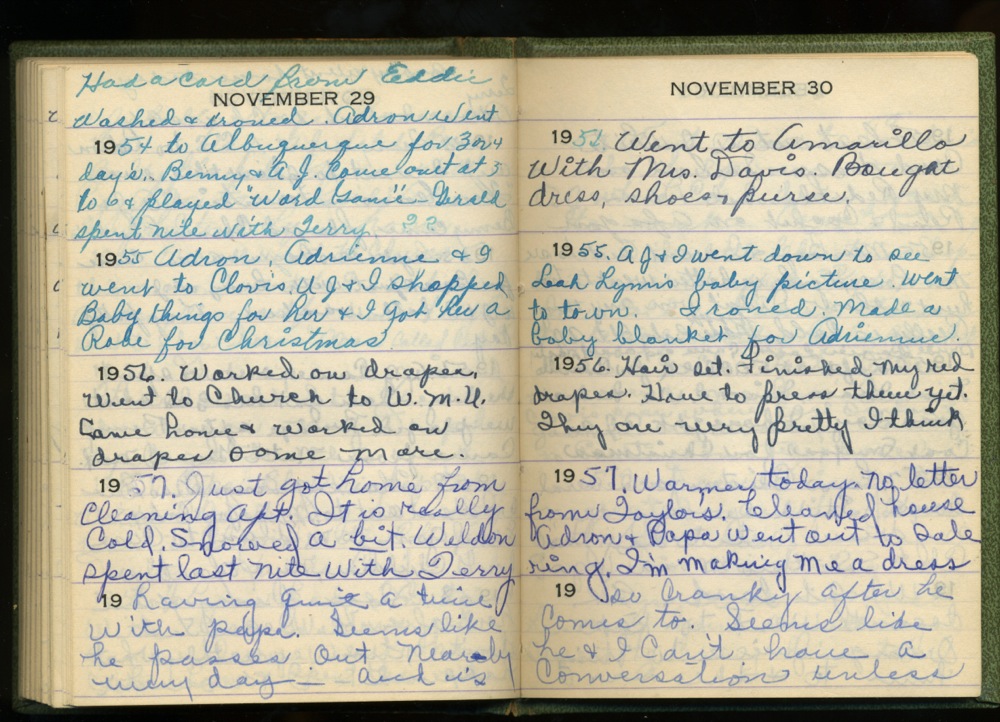 Had a card from Eddie
NOVEMBER 29
Washed & Ironed. Adron went
1954 to Albuquerque for 3 or 4
day's. Benny & A.J. Came out at 5
to 6 & played "Word Game" Gerald
spent nite with Terry. ??
1955 Adron, Adrienne & I
went to Clovis. A J & I shopped
Baby things for her & I got her a
Robe for Christmas
1956. Worked on drapes.
Went to Church to W.M.U.
Came home & worked on
drapes some more.
1957. Just got home from
Cleaning Apt. It is really
Cold. Snowed a bit. Weldon
spent last nite with Terry
19 having quite a time
with papa. Seems like
he passes out nearby
every day — and is
NOVEMBER 30
1954 Went to Amarillo
With Mrs. Davis. Bought
dress, shoes & purse.
1955. A J & I went down to see
Leah Lynn's baby picture. Went
to town. I roned. Made a
baby blanket for Adrienne.
1956. Hair set. Finished my red
drapes. Have to press them yet.
They are very pretty I think
1957. Warmer today. No letter
from Taylors. Cleaned house
Adron & Papa went out to Sale
ring. I'm making me a dress
19 so cranky after he
Comes to. Seems like
he & I Can't have a
Conversation unless